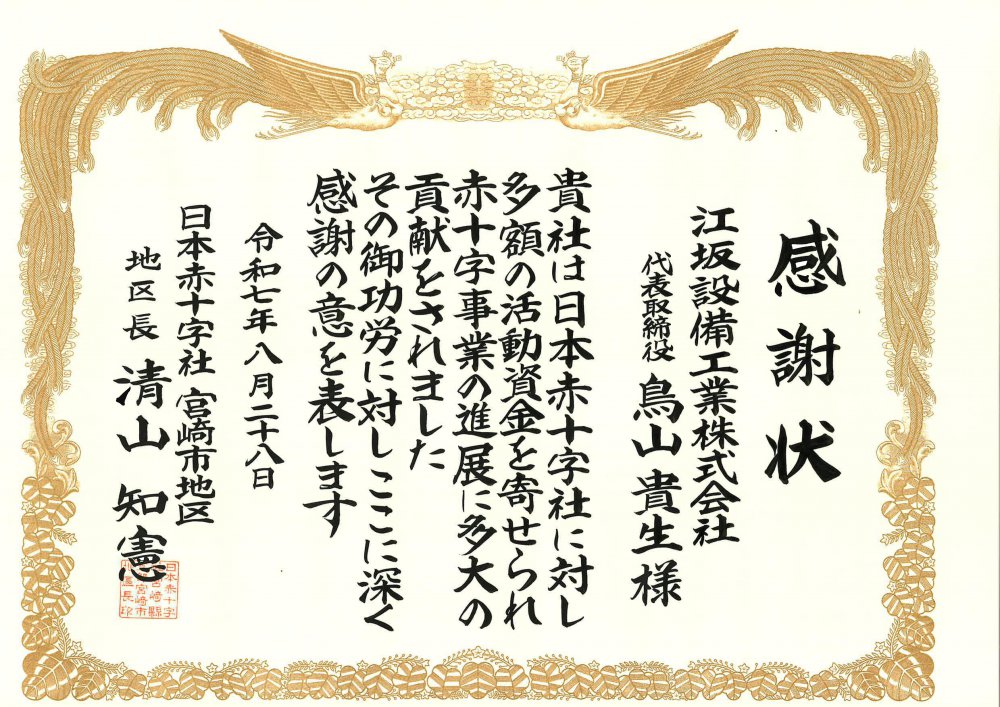 感謝状
江坂設備工業株式会社
代表取締役 鳥山貴生様
貴社は日本赤十字社に対し
多額の活動資金を寄せられ
赤十字事業の進展に多大の
貢献をされました
その御功労に対しここに深く
感謝の意を表します
令和七年八月二十八日
日本赤十字社 宮崎市地区
地区長 清山 知憲
日本赤十字
宮崎縣
宮崎市
地區長印